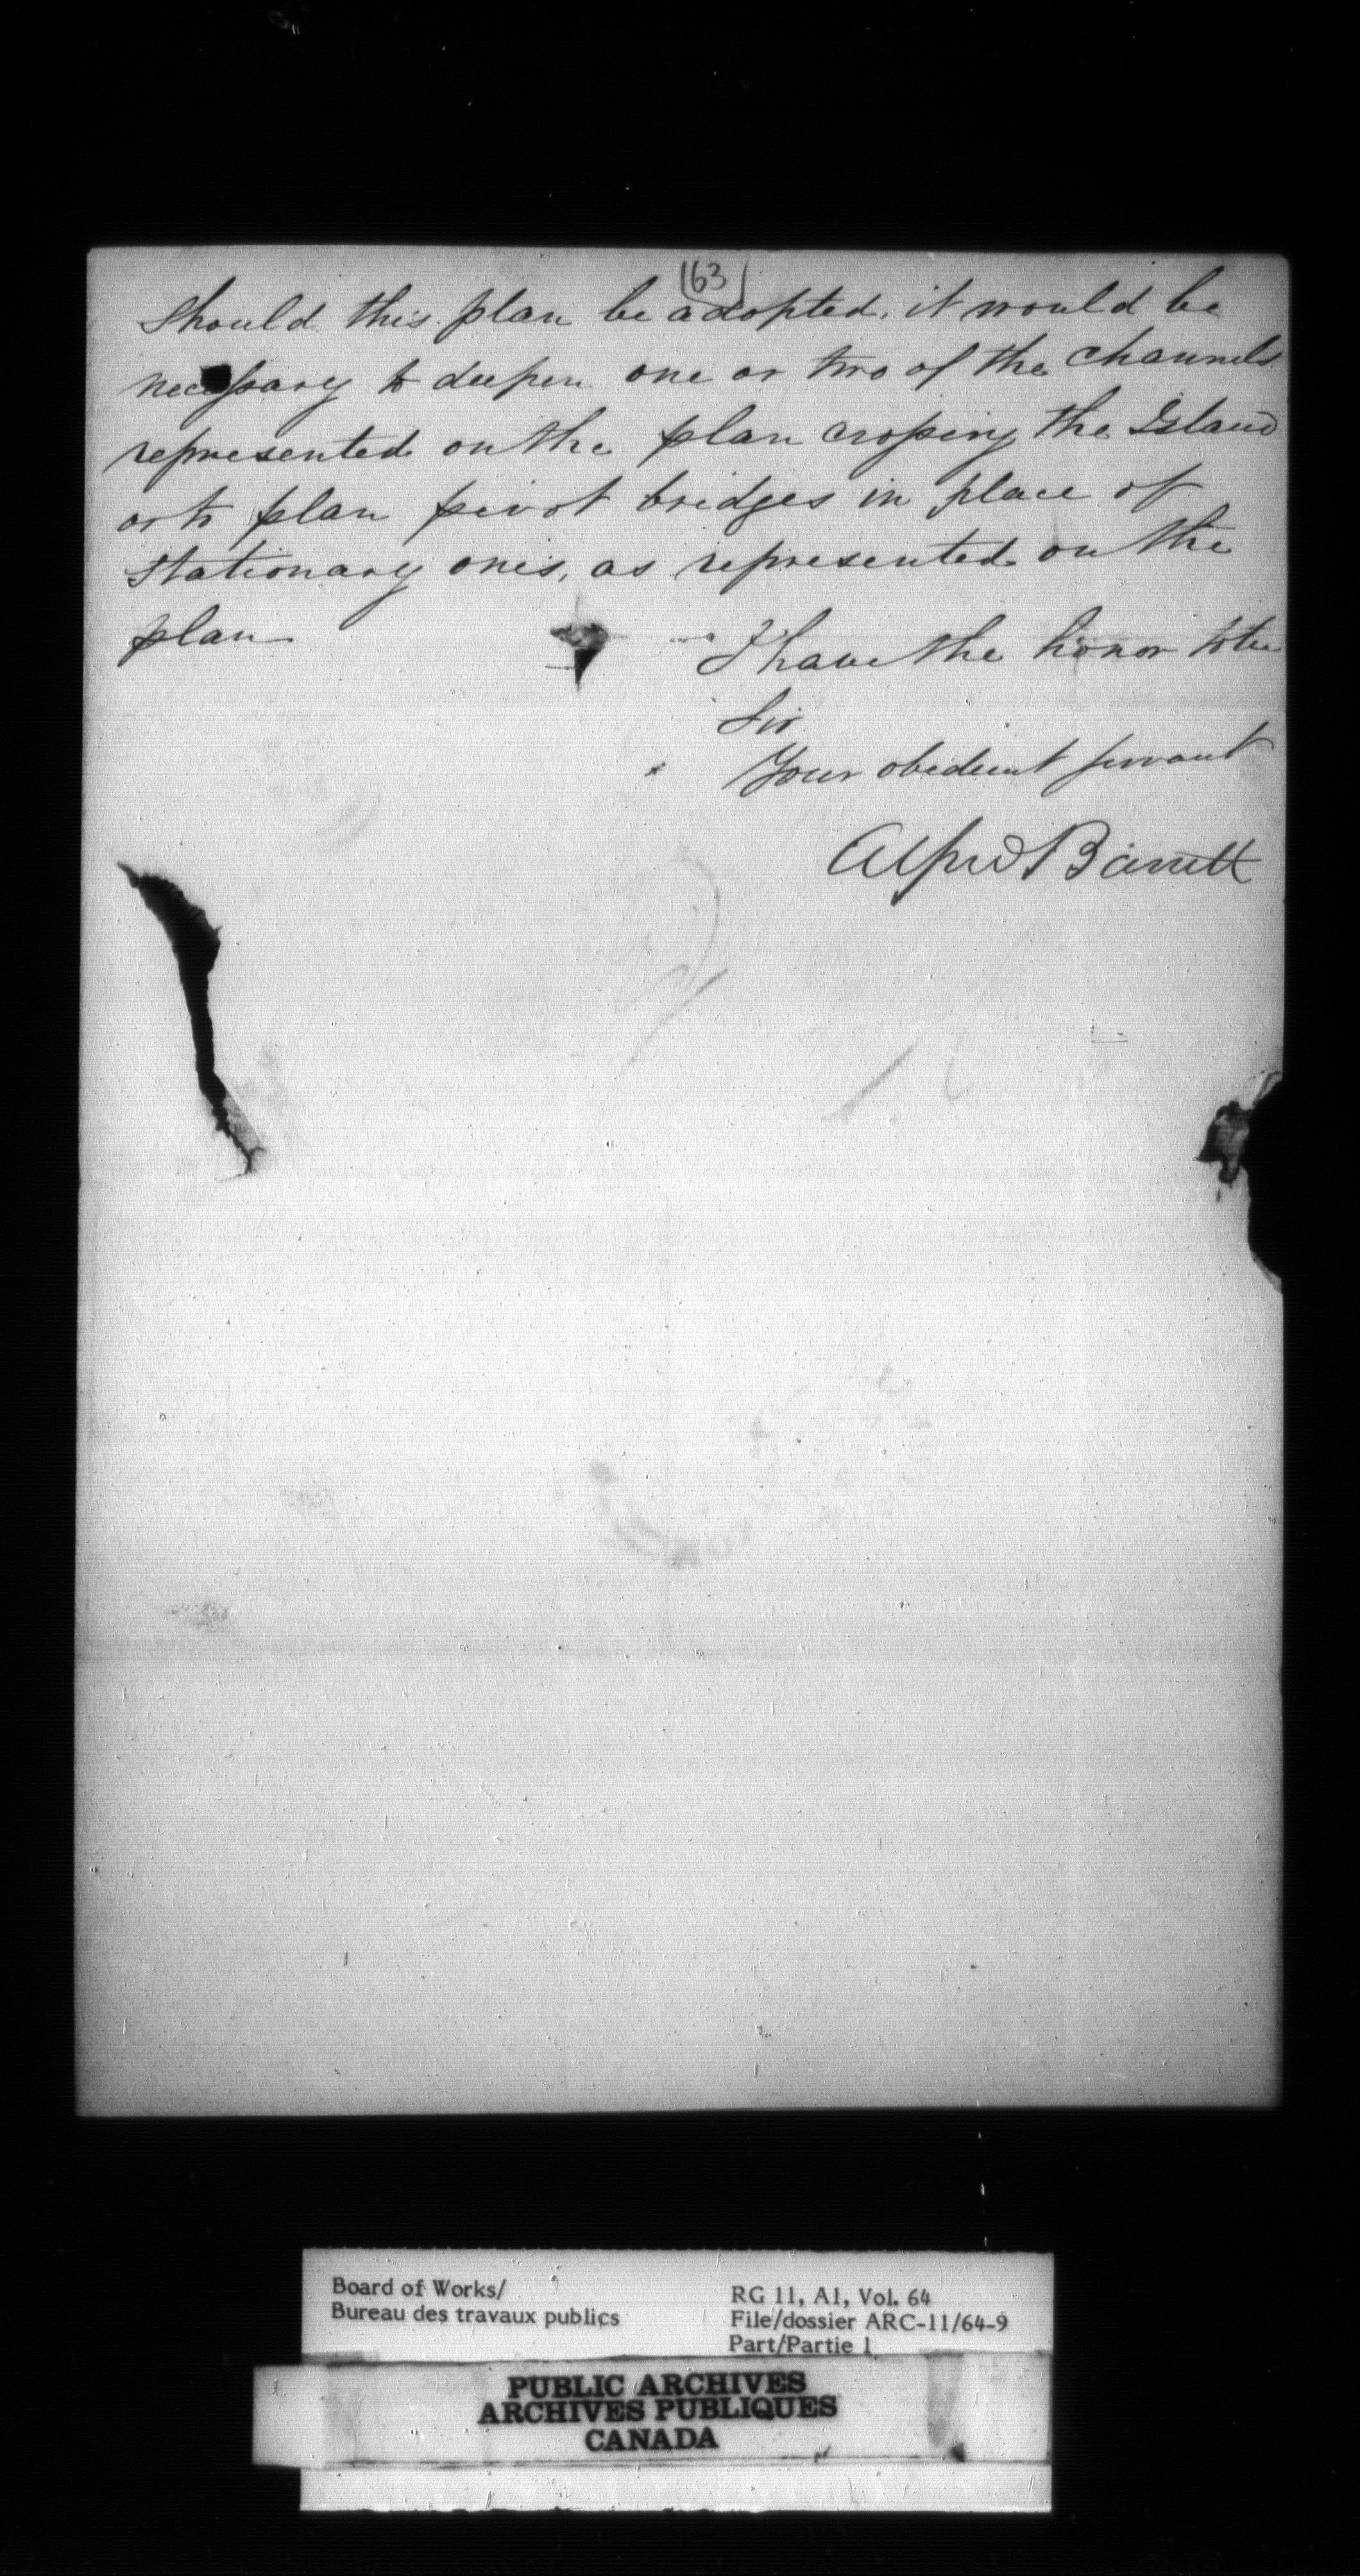 (63)
Should this plan be adopted, it would be
necessary to deepen one or two of the channels
represented on the plan crossing the Island
or to plan pivot bridges in place of
stationary ones, as represented on the
plan
I have the honor to be
Sir
Your obedient servant
Alfred Barrett
Board of Works/
Bureau des travaux publics
RG 11, A1, Vol. 64
File/dossier ARC-11/64-9
Part/Partie 1
PUBLIC ARCHIVES
ARCHIVES PUBLIQUES
CANADA